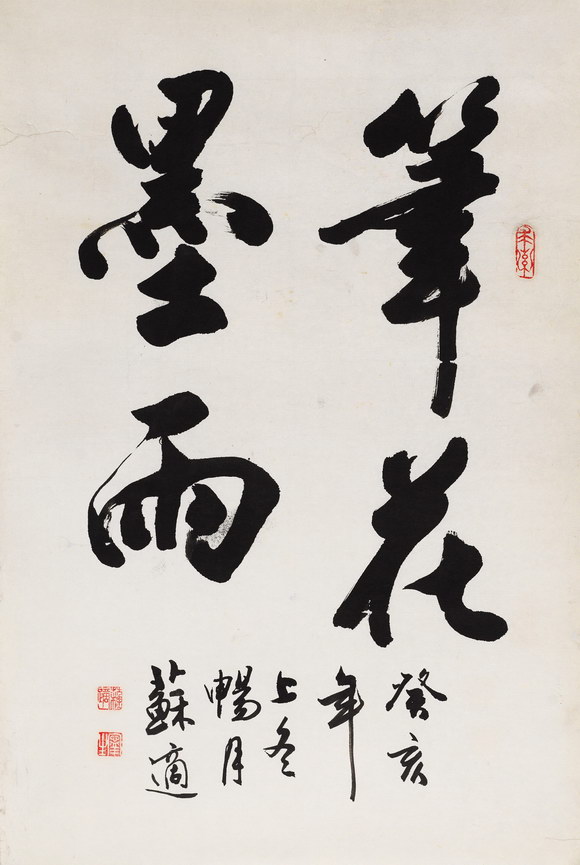 筆花
墨雨
癸亥
年
上冬
暢月
蘇適